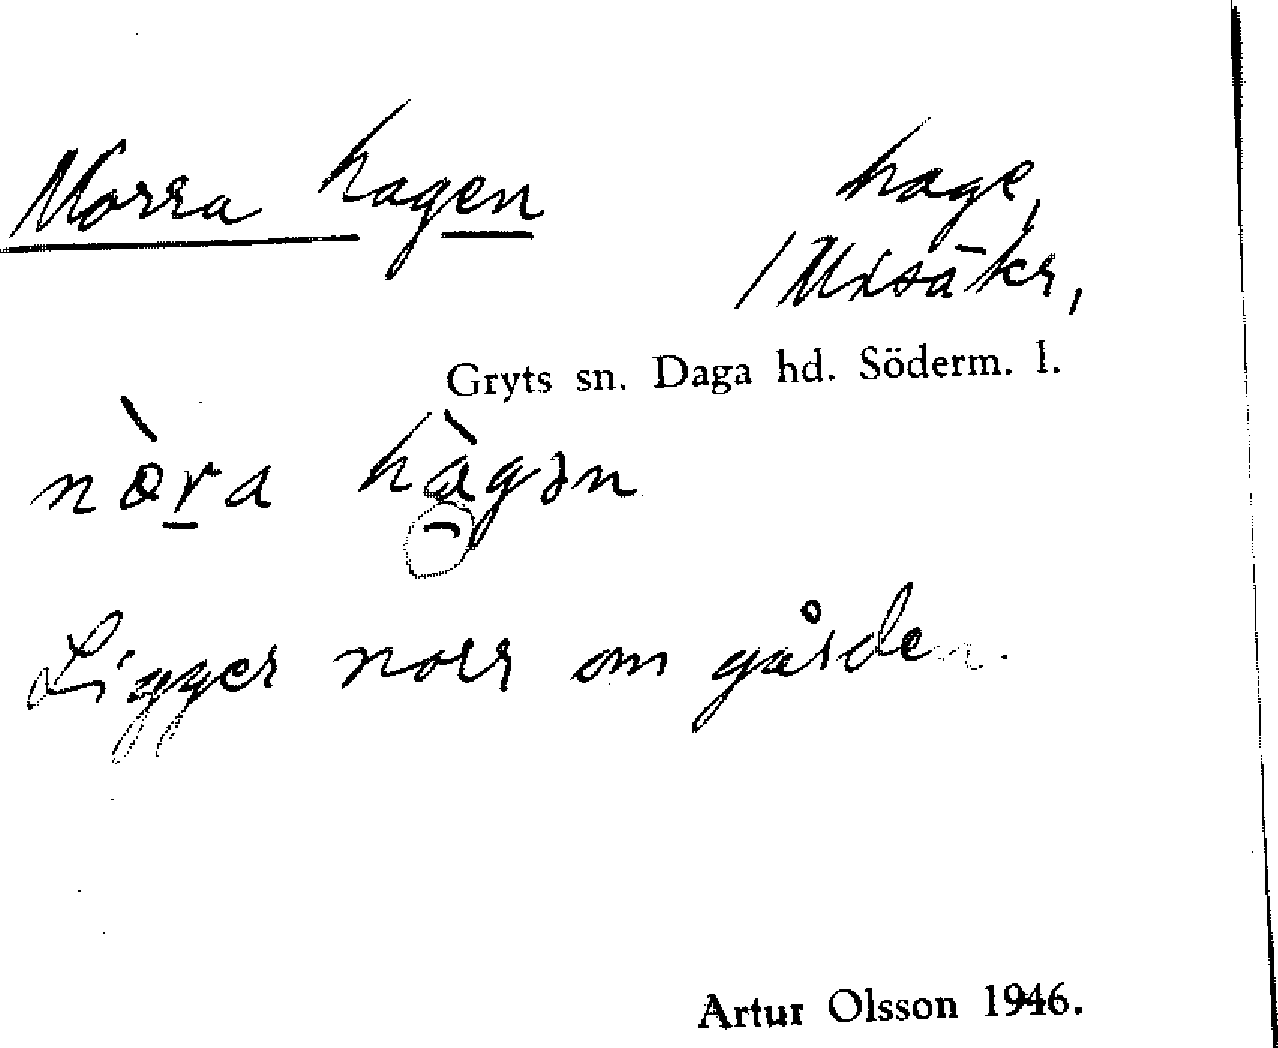 Norra hagen hage,
/ Ulvsäkr,
Gryts sn. Daga hd. Söderm. l.
nòra hàgən
Ligger norr om gården.
Artur Olsson 1946.